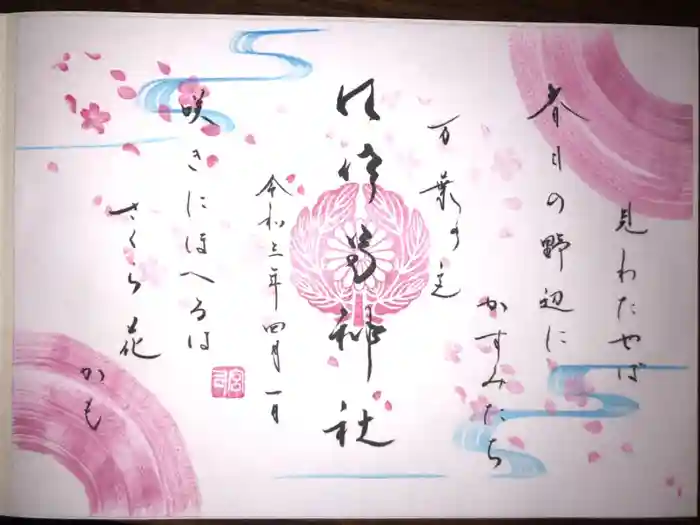 見わたせば
春日の野辺に
かすみたち
万葉の
神社
令和三年四月一日
宮司
咲きにほへるは
さくら花
かも